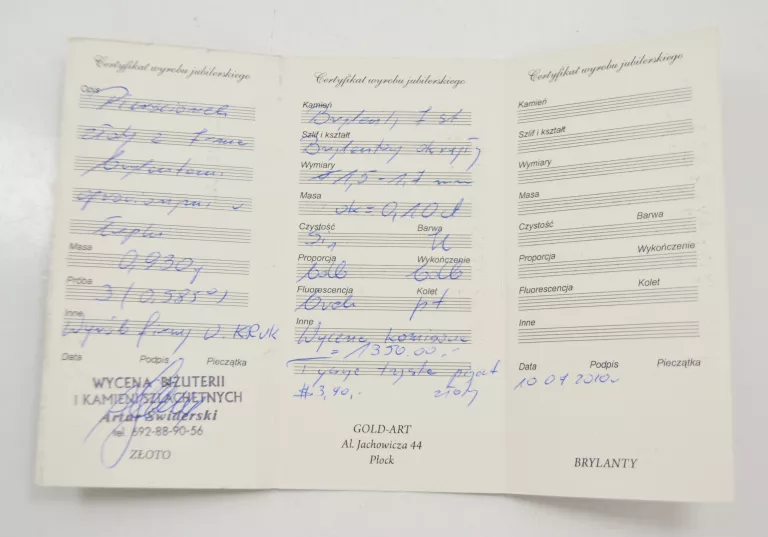 Certyfikat wyrobu jubilerskiego
Opis
Pierścionek
złoty z 7-ma
brylantami
Masa
0,930g
Próba
3 (0,585°)
Inne
Wyrób firmy W. KRUK
Data Podpis Pieczątka
WYCENA BIŻUTERII
I KAMIENI SZLACHETNYCH
Artur Świderski
tel. 692-88-90-56
ZŁOTO
Certyfikat wyrobu jubilerskiego
Kamień
Brylanty 7 szt
Szlif i kształt
Brylantowy okrągły
Wymiary
1,5 - 1,7 mm
Masa
ok = 0,10 ct
Czystość Barwa
Si1 H
Proporcja Wykończenie
bdb bdb
Fluorescencja Kolet
Brak pt
Inne
Wycena
= 1350.00.-
złoty
GOLD-ART
Al. Jachowicza 44
Płock
Certyfikat wyrobu jubilerskiego
Kamień
Szlif i kształt
Wymiary
Masa
Czystość Barwa
Proporcja Wykończenie
Fluorescencja Kolet
Inne
Data Podpis Pieczątka
10 07 2010
BRYLANTY